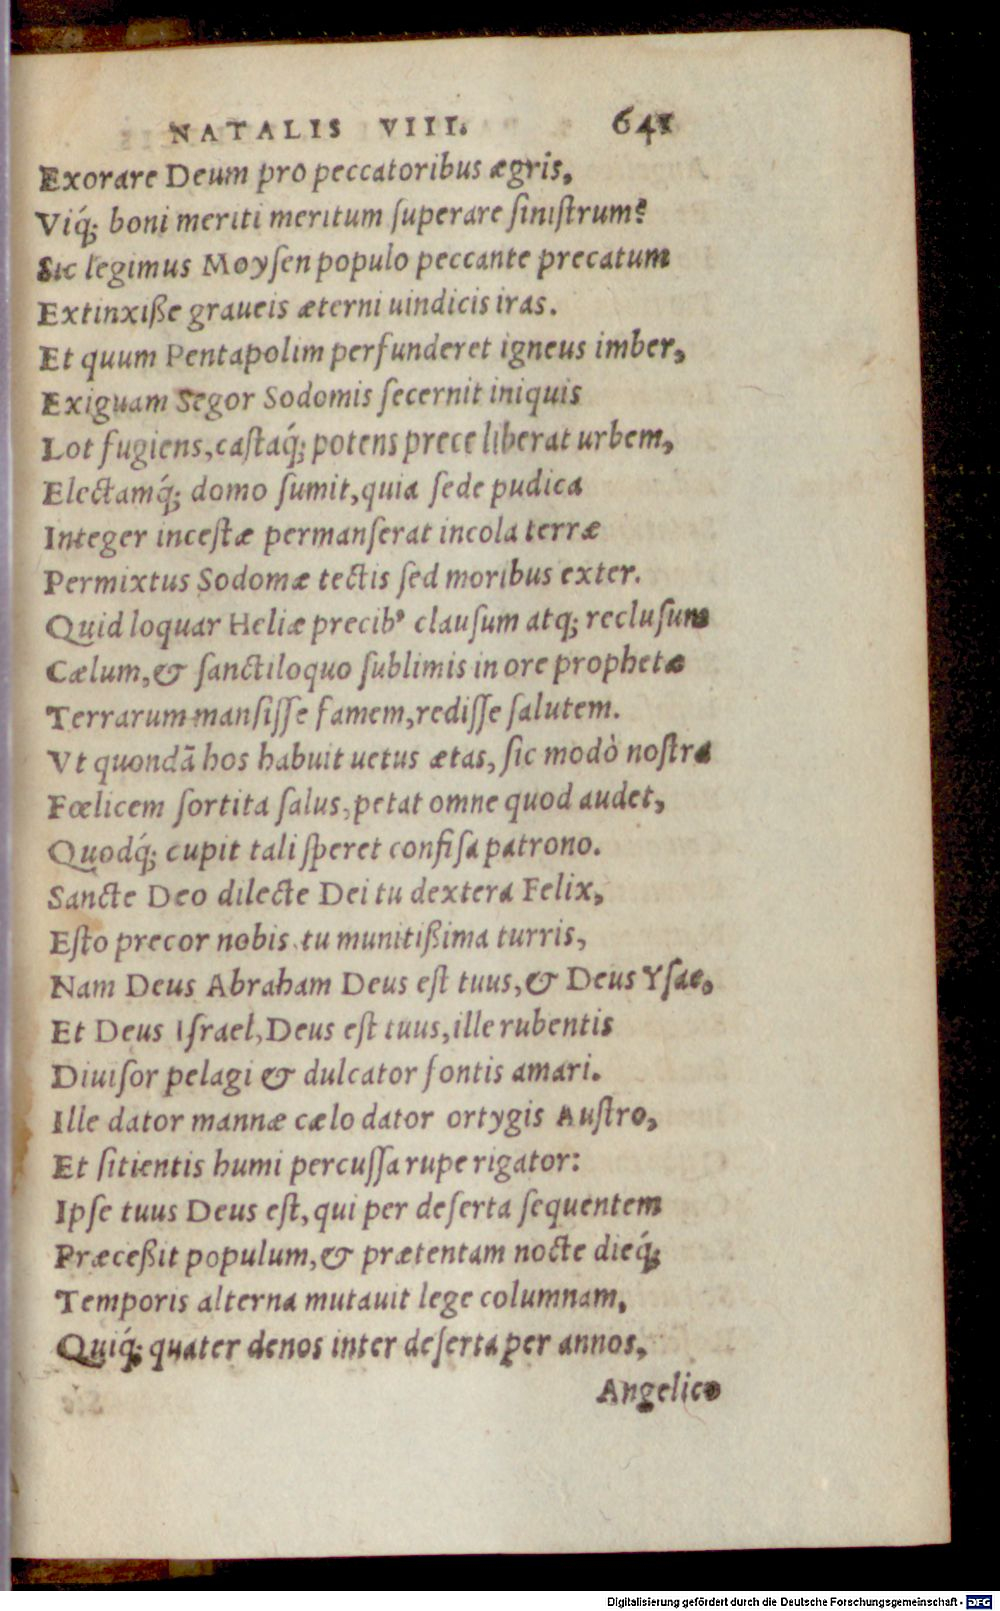 NATALIS VIII. 641
Exorare Deum pro peccatoribus ægris,
Viq́; boni meriti meritum ſuperare ſiniſtrum?
Sic legimus Moyſen populo peccante precatum
Extinxiße graueis æterni uindicis iras.
Et quum Pentapolim perfunderet igneus imber,
Exiguam Segor Sodomis ſecernit iniquis
Lot fugiens, caſtaq́; potens prece liberat urbem,
Electamq́; domo ſumit, quia ſede pudica
Integer inceſtæ permanſerat incola terræ
Permixtus Sodomæ tectis ſed moribus exter.
Quid loquar Heliæ precibꝰ clauſum atq; recluſum
Cælum, & ſanctiloquo ſublimis in ore prophetæ
Terrarum manſiſſe famem, rediſſe ſalutem.
Vt quondã hos habuit uetus ætas, ſic modò noſtra
Fœlicem ſortita ſalus, petat omne quod audet,
Quodq́; cupit tali ſperet confiſa patrono.
Sancte Deo dilecte Dei tu dextera Felix,
Eſto precor nobis tu munitißima turris,
Nam Deus Abraham Deus eſt tuus, & Deus Yſac.
Et Deus Iſrael, Deus eſt tuus, ille rubentis
Diuiſor pelagi & dulcator fontis amari.
Ille dator mannæ cælo dator ortygis Auſtro,
Et ſitientis humi percuſſa rupe rigator:
Ipſe tuus Deus eſt, qui per deſerta ſequentem
Præceßit populum, & prætentam nocte dieq́;
Temporis alterna mutauit lege columnam,
Quiq́; quater denos inter deſerta per annos,
Angelico
Digitalisierung gefördert durch die Deutsche Forschungsgemeinschaft - DFG